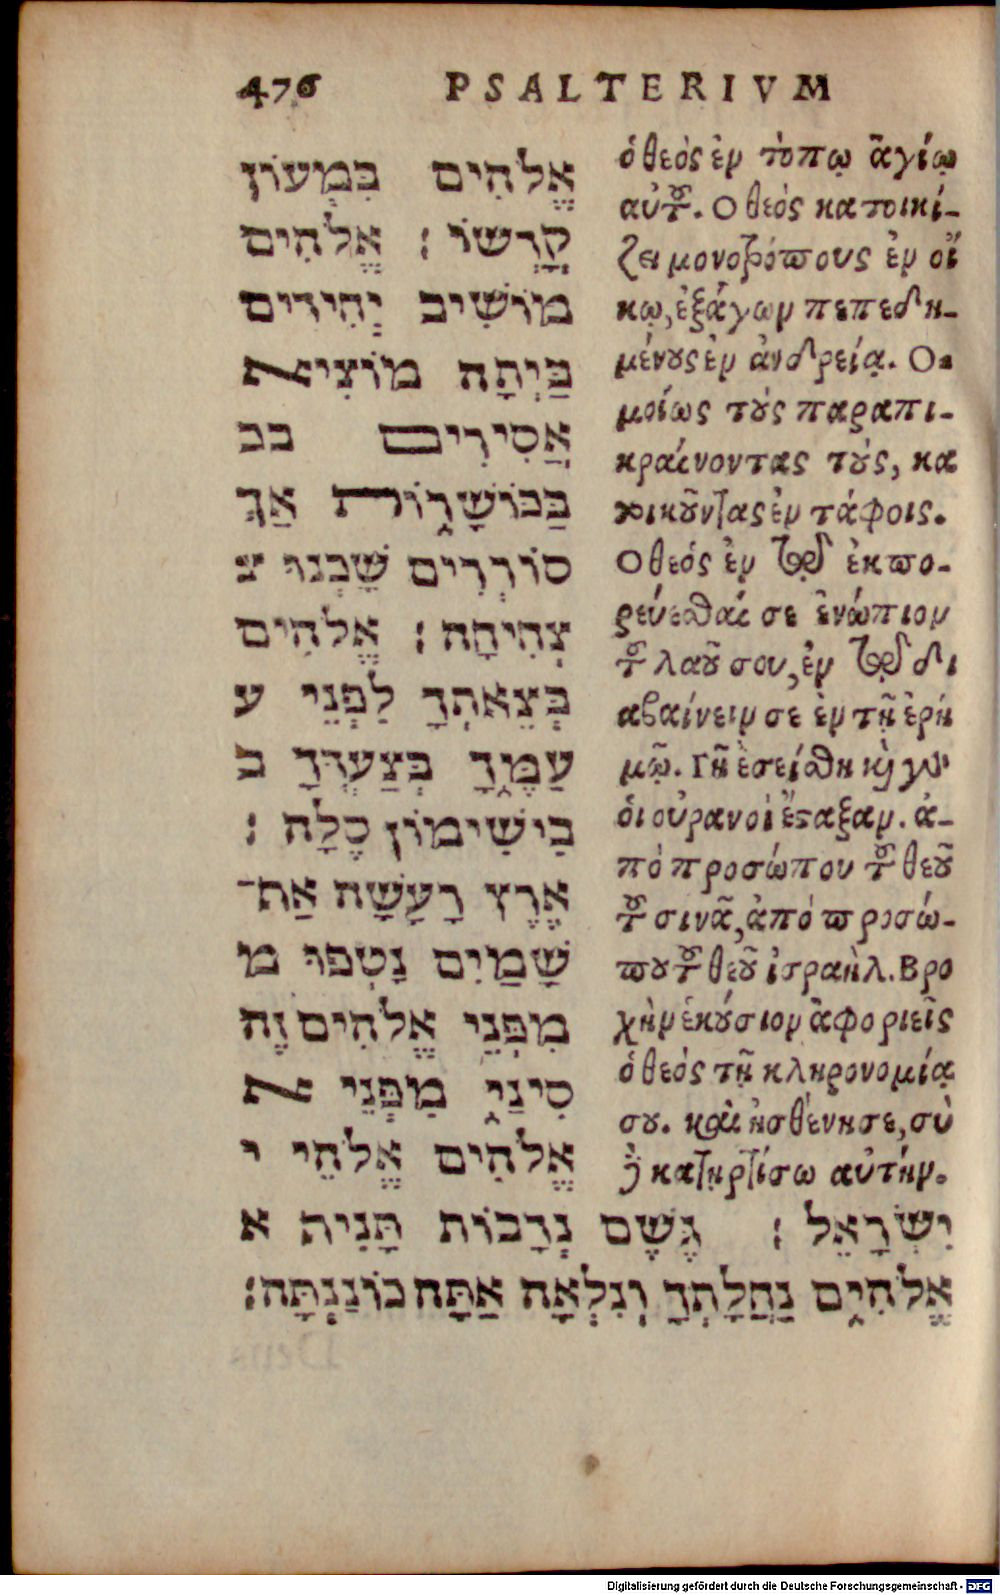 476 PSALTERIVM
אֱלֹהִים בִּמְעוֹן
קָדְשׁוֹ : אֱלֹהִים
מוֹשִׁיב יְחִידִים
בַּיְתָה מוֹצִיא
אֲסִירִים בב
בַּכּוֹשָׁרוֹת אַךְ
סוֹרְרִים שָׁכְנוּ צ
צְחִיחָה : אֱלֹהִים
בְּצֵאתְךָ לִפְנֵי ע
עַמֶּךָ בְּצַעְדְּךָ ב
בִישִׁימוֹן סֶלָה :
אֶרֶץ רָעָשָׁה אַף־
שָׁמַיִם נָטְפוּ מ
מִפְּנֵי אֱלֹהִים זֶה
סִינַי מִפְּנֵי א
אֱלֹהִים אֱלֹהֵי י
ὁ θεὸς ἐν τόπῳ ἁγίῳ
αὐτοῦ. Ο θεὸς κατοικί-
ζει μονοτρόπους ἐν οἴ
κῳ, ἐξάγων πεπεδη-
μένους ἐν ἀνδρείᾳ. Ο-
μοίως τοὺς παραπι-
κραίνοντας τούς, κα
τοικοῦντας ἐν τάφοις.
Ο θεὸς ἐν τῷ ἐκπο-
ρεύεσθαί σε ἐνώπιον
τοῦ λαοῦ σου, ἐν τῷ δι
αβαίνειν σε ἐν τῇ ἐρή
μῳ. Γῆ ἐσείσθη καὶ γὰρ
ὁι οὐρανοὶ ἔσταξαν. ἀ-
πὸ προσώπου τοῦ θεοῦ
τοῦ σινᾶ, ἀπὸ προσώ-
που τοῦ θεοῦ ἰσραὴλ. Βρο
χὴν ἑκούσιον ἀφοριεῖς
ὁ θεὸς τῇ κληρονομίᾳ
σου. καὶ ἠσθένησε, σὺ
δὲ κατηρτίσω αὐτήν.
יִשְׂרָאֵל : גֶּשֶׁם נְדָבוֹת תָּנִיף א
אֱלֹהִים נַחֲלָתְךָ וְנִלְאָה אַתָּה כוֹנַנְתָּהּ:
Digitalisierung gefördert durch die Deutsche Forschungsgemeinschaft - DFG